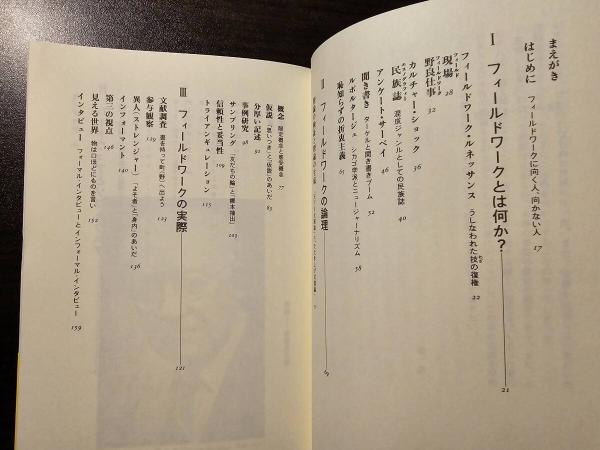 まえがき
はじめに フィールドワークに向く人、向かない人 17
I フィールドワークとは何か? 21
フィールドワーク・ルネッサンス うしなわれた技の復権 22
現場 フィールド 28
野良仕事 フィールドワーク 32
カルチャー・ショック 36
民族誌 エスノグラフィー 混成ジャンルとしての民族誌 40
アンケート・サーベイ 46
聞き書き ターケルと聞き書きブーム 52
ルポルタージュ シカゴ学派とニュージャーナリズム 58
恥知らずの折衷主義 65
II フィールドワークの論理
概念 限定概念と感受概念 77
仮説 「思いつき」と「仮説」のあいだ 83
分厚い記述 91
事例研究 98
サンプリング 「友だちの輪」と「標本抽出」 103
信頼性と妥当性 109
トライアンギュレーション 115
III フィールドワークの実際 121
文献調査 書を持って町(野)へ出よう 123
参与観察 129
異人(ストレンジャー) 「よそ者」と「身内」のあいだ 136
インフォーマント 140
第三の視点 146
見える世界 物は口ほどにものを言い 152
インタビュー フォーマル・インタビューとインフォーマル・インタビュー 159